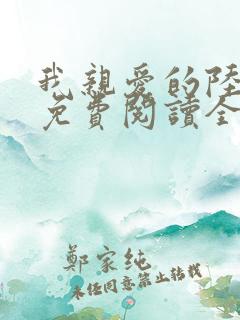 我親愛的陸
免費閱讀全
鄭家純
未經同意禁止轉載